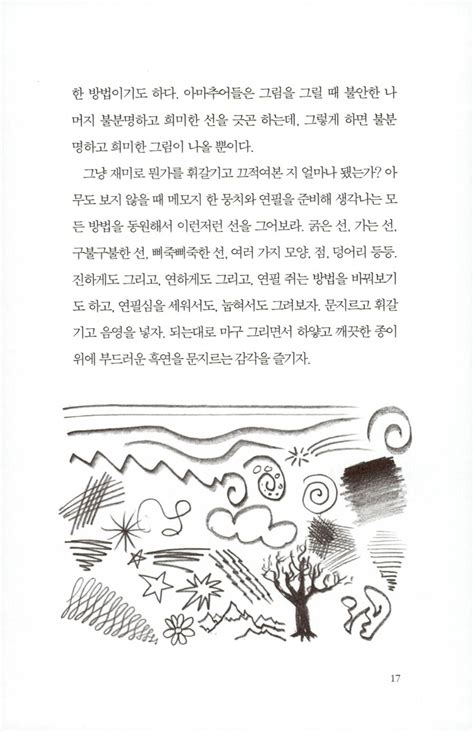 한 방법이기도 하다. 아마추어들은 그림을 그릴 때 불안한 나
머지 불분명하고 희미한 선을 긋곤 하는데, 그렇게 하면 불분
명하고 희미한 그림이 나올 뿐이다.
그냥 재미로 뭔가를 휘갈기고 끄적여본 지 얼마나 됐는가? 아
무도 보지 않을 때 메모지 한 뭉치와 연필을 준비해 생각나는 모
든 방법을 동원해서 이런저런 선을 그어보라. 굵은 선, 가는 선,
구불구불한 선, 삐죽삐죽한 선, 여러 가지 모양, 점, 덩어리 등등.
진하게도 그리고, 연하게도 그리고, 연필 쥐는 방법을 바꿔보기
도 하고, 연필심을 세워서도, 눕혀서도 그려보자. 문지르고 휘갈
기고 음영을 넣자. 되는대로 마구 그리면서 하얗고 깨끗한 종이
위에 부드러운 흑연을 문지르는 감각을 즐기자.
17